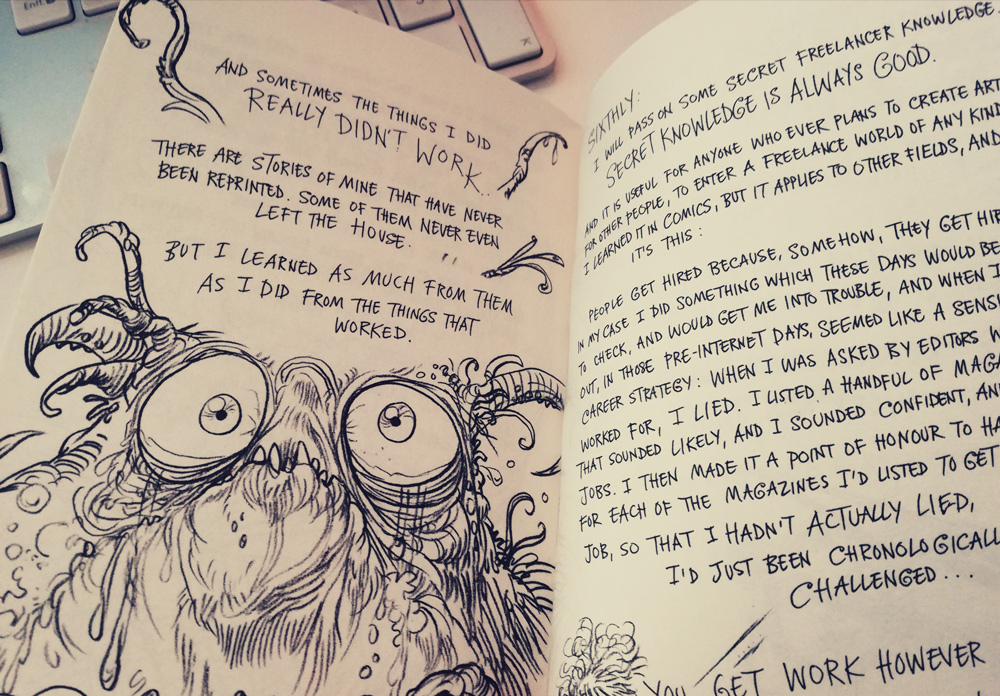 AND SOMETIMES THE THINGS I DID
REALLY DIDN'T WORK..
THERE ARE STORIES OF MINE THAT HAVE NEVER
BEEN REPRINTED. SOME OF THEM NEVER EVEN
LEFT THE HOUSE.
BUT I LEARNED AS MUCH FROM THEM
AS I DID FROM THE THINGS THAT
WORKED.
SIXTHLY:
I WILL PASS ON SOME SECRET FREELANCER KNOWLEDGE.
SECRET KNOWLEDGE IS ALWAYS GOOD.
AND IT IS USEFUL FOR ANYONE WHO EVER PLANS TO CREATE ART
FOR OTHER PEOPLE, TO ENTER A FREELANCE WORLD OF ANY KIND
I LEARNED IT IN COMICS, BUT IT APPLIES TO OTHER FIELDS, AND
IT'S THIS:
PEOPLE GET HIRED BECAUSE, SOMEHOW, THEY GET HIR
IN MY CASE I DID SOMETHING WHICH THESE DAYS WOULD BE
TO CHECK, AND WOULD GET ME INTO TROUBLE, AND WHEN I
OUT, IN THOSE PRE-INTERNET DAYS, SEEMED LIKE A SENSI
CAREER STRATEGY: WHEN I WAS ASKED BY EDITORS W
WORKED FOR, I LIED. I LISTED A HANDFUL OF MAGA
THAT SOUNDED LIKELY, AND I SOUNDED CONFIDENT, AN
JOBS. I THEN MADE IT A POINT OF HONOUR TO HA
FOR EACH OF THE MAGAZINES I'D LISTED TO GET
JOB, SO THAT I HADN'T ACTUALLY LIED,
I'D JUST BEEN CHRONOLOGICALL
CHALLENGED...
YOU GET WORK HOWEVER